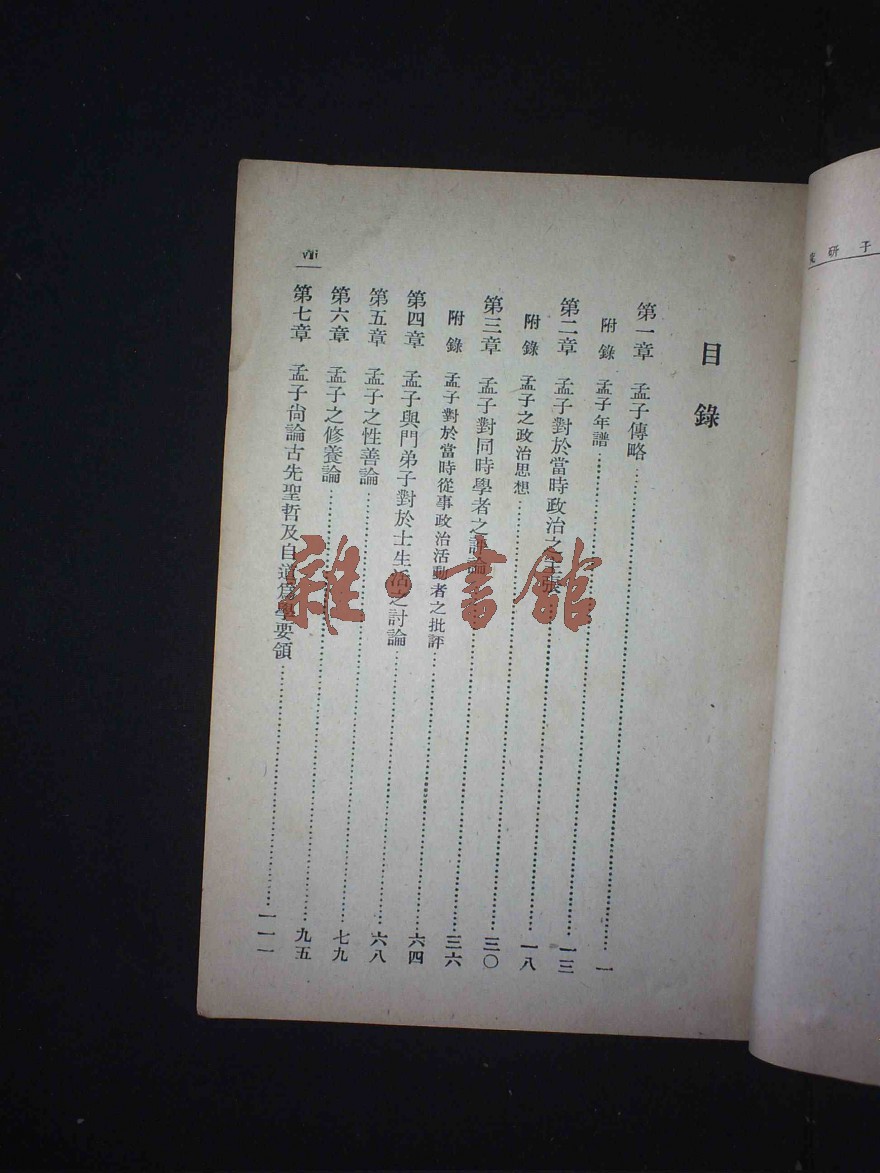 子研究
目錄
第一章 孟子傳略……一
附錄 孟子年譜……一三
第二章 孟子對於當時政治之主張……一八
附錄 孟子之政治思想……三〇
第三章 孟子對同時學者之評論……三六
附錄 孟子對於當時從事政治活動者之批評……六四
第四章 孟子與門弟子對於士生活之討論……六八
第五章 孟子之性善論……七九
第六章 孟子之修養論……九五
第七章 孟子尙論古先聖哲及自道爲學要領……一一一
viii
雜·書館